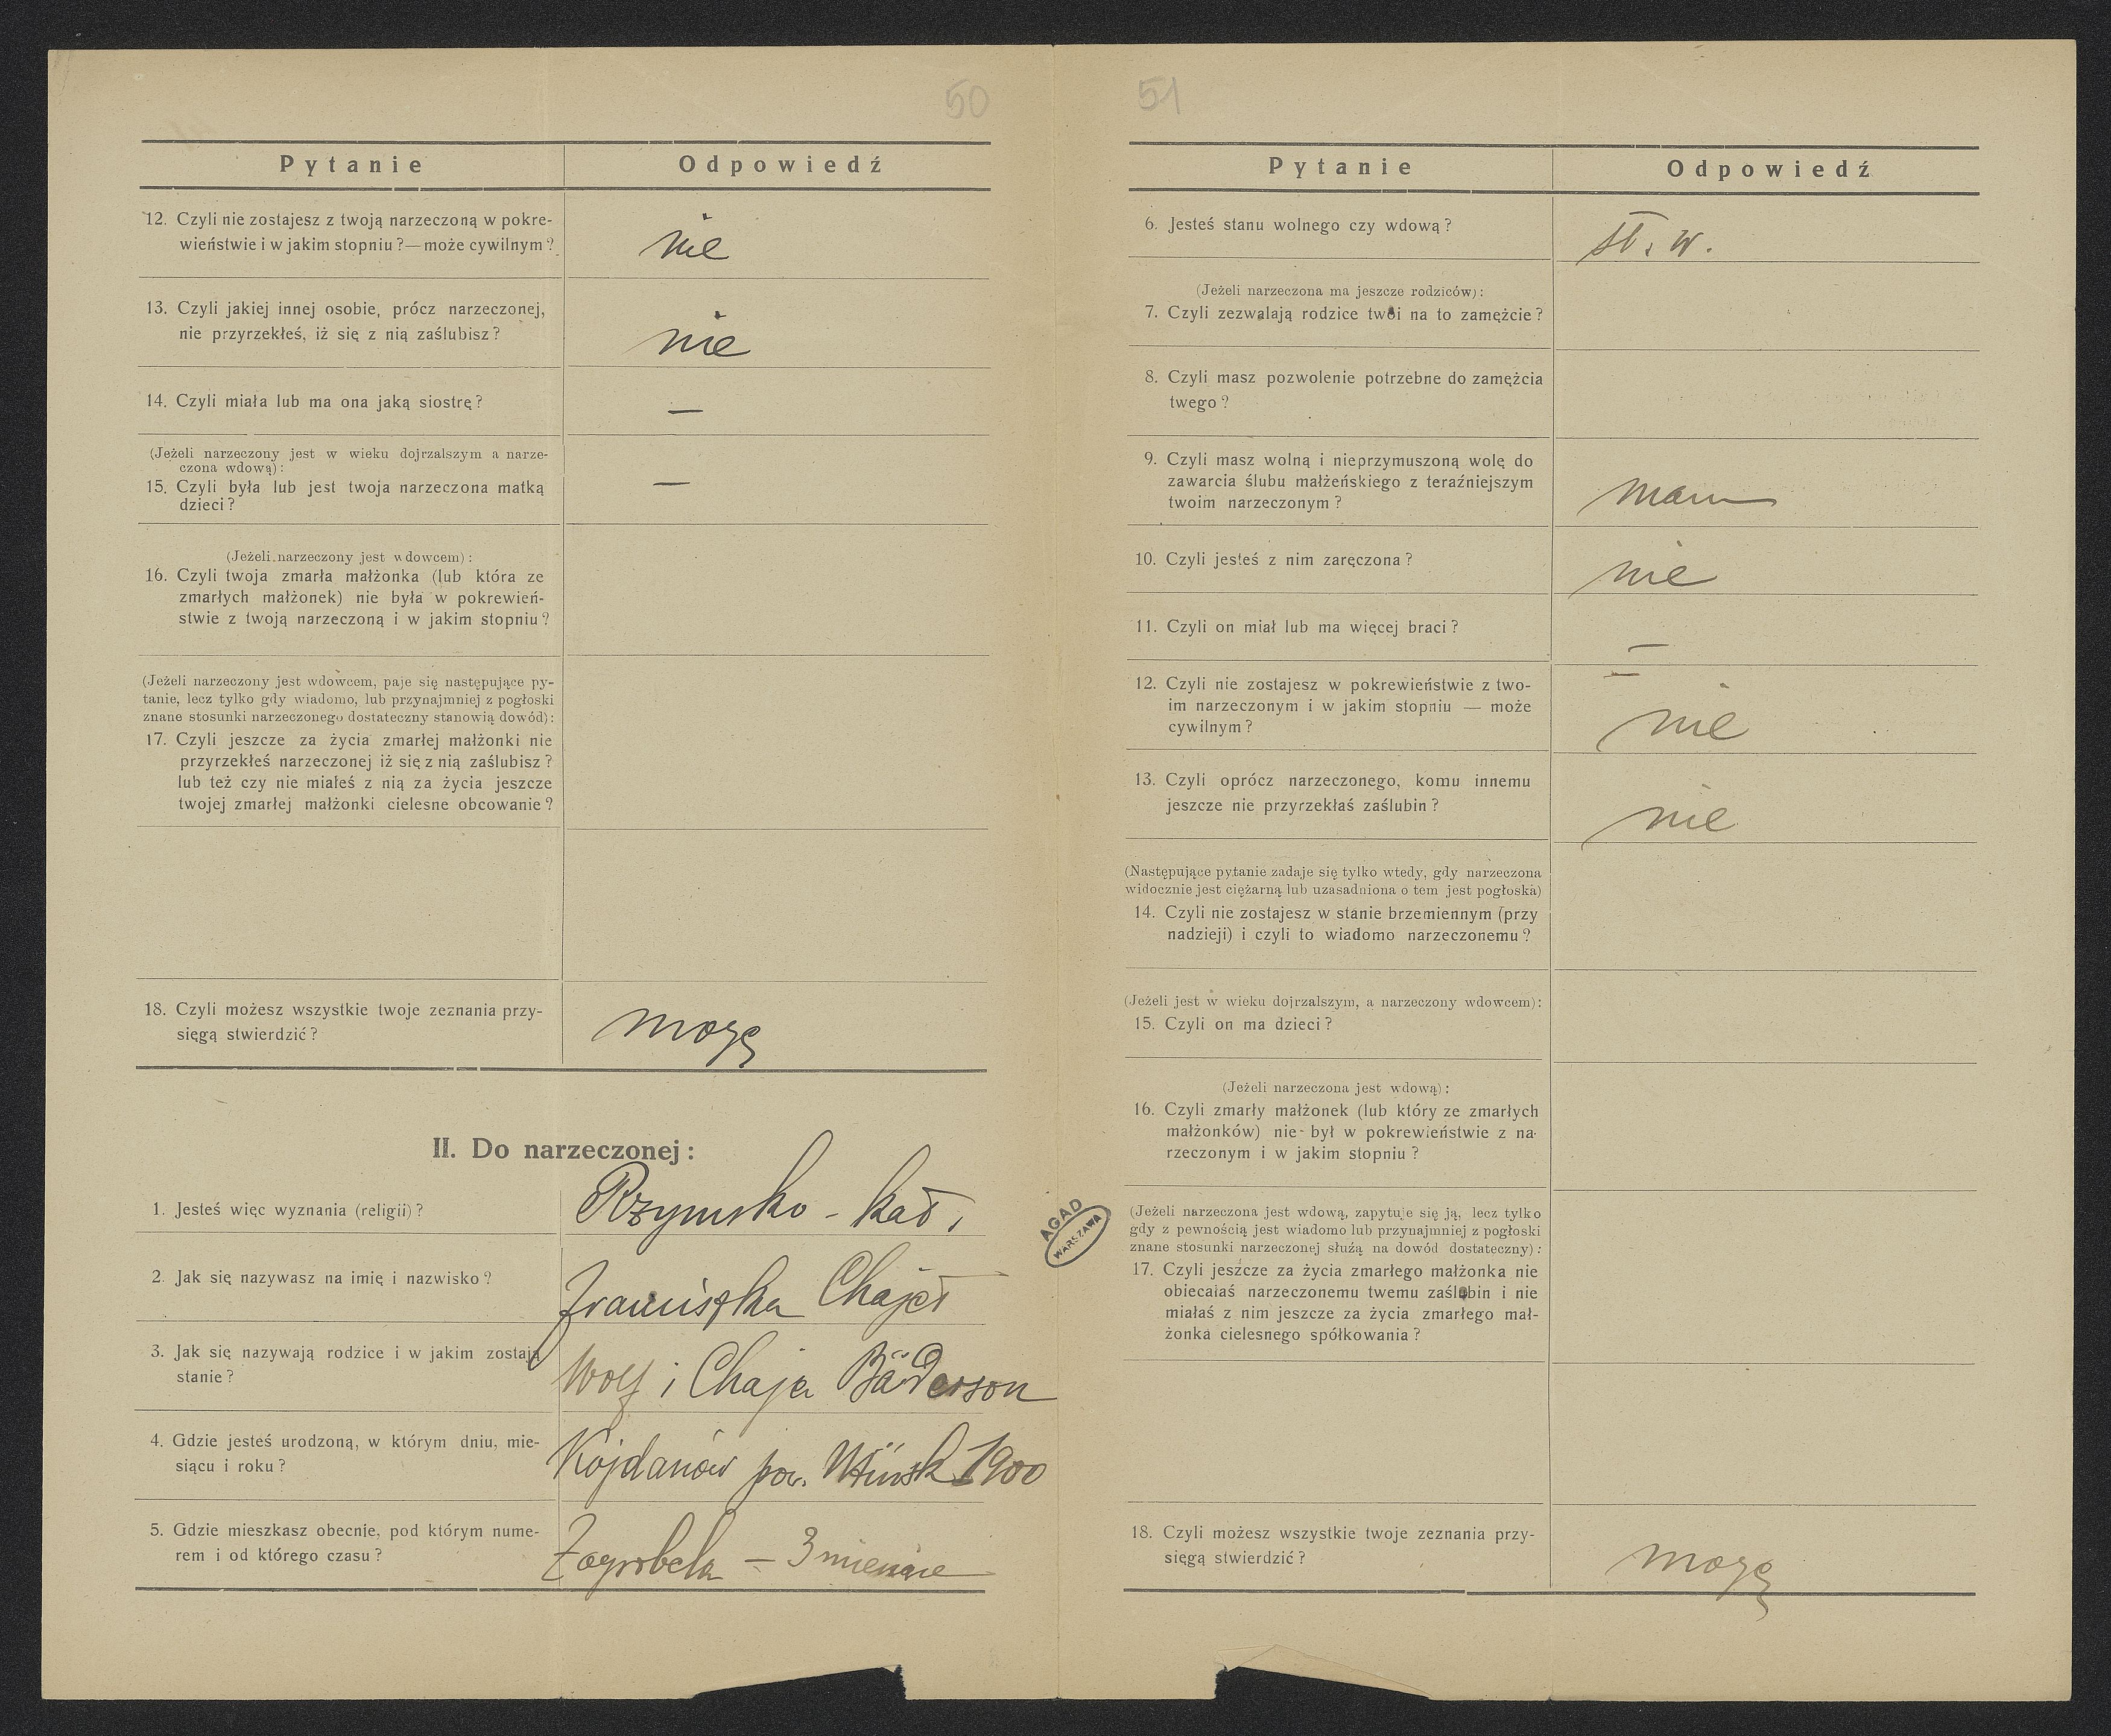 50
Pytanie Odpowiedź
12. Czyli nie zostajesz z twoją narzeczoną w pokre-
wieństwie i w jakim stopniu?—może cywilnym?
nie
13. Czyli jakiej innej osobie, prócz narzeczonej,
nie przyrzekłeś, iż się z nią zaślubisz?
nie
14. Czyli miała lub ma ona jaką siostrę?
—
(Jeżeli narzeczony jest w wieku dojrzalszym a narze-
czona wdową):
15. Czyli była lub jest twoja narzeczona matką
dzieci?
—
(Jeżeli narzeczony jest wdowcem):
16. Czyli twoja zmarła małżonka (lub która ze
zmarłych małżonek) nie była w pokrewień-
stwie z twoją narzeczoną i w jakim stopniu?
(Jeżeli narzeczony jest wdowcem, paje się następujące py-
tanie, lecz tylko gdy wiadomo, lub przynajmniej z pogłoski
znane stosunki narzeczonego dostateczny stanowią dowód):
17. Czyli jeszcze za życia zmarłej małżonki nie
przyrzekłeś narzeczonej iż się z nią zaślubisz?
lub też czy nie miałeś z nią za życia jeszcze
twojej zmarłej małżonki cielesne obcowanie?
18. Czyli możesz wszystkie twoje zeznania przy-
sięgą stwierdzić?
mogę
II. Do narzeczonej:
1. Jesteś więc wyznania (religii)?
Rzymsko - kat.
2. Jak się nazywasz na imię i nazwisko?
Franciszka Chajet
3. Jak się nazywają rodzice i w jakim zostają
stanie?
Wolf i Chaja Båderson
4. Gdzie jesteś urodzoną, w którym dniu, mie-
siącu i roku?
Kojdanów pow. Mińsk 1900
5. Gdzie mieszkasz obecnie, pod którym nume-
rem i od którego czasu?
Zagrobela — 3 miesiące
AGAD
WARSZAWA
51
Pytanie Odpowiedź
6. Jesteś stanu wolnego czy wdową?
st. w.
(Jeżeli narzeczona ma jeszcze rodziców):
7. Czyli zezwalają rodzice twoi na to zamężcie?
8. Czyli masz pozwolenie potrzebne do zamężcia
twego?
9. Czyli masz wolną i nieprzymuszoną wolę do
zawarcia ślubu małżeńskiego z teraźniejszym
twoim narzeczonym?
mam
10. Czyli jesteś z nim zaręczona?
nie
11. Czyli on miał lub ma więcej braci?
—
12. Czyli nie zostajesz w pokrewieństwie z two-
im narzeczonym i w jakim stopniu — może
cywilnym?
nie
13. Czyli oprócz narzeczonego, komu innemu
jeszcze nie przyrzekłaś zaślubin?
nie
(Następujące pytanie zadaje się tylko wtedy, gdy narzeczona
widocznie jest ciężarną lub uzasadniona o tem jest pogłoska)
14. Czyli nie zostajesz w stanie brzemiennym (przy
nadzieji) i czyli to wiadomo narzeczonemu?
(Jeżeli jest w wieku dojrzalszym, a narzeczony wdowcem):
15. Czyli on ma dzieci?
(Jeżeli narzeczona jest wdową):
16. Czyli zmarły małżonek (lub który ze zmarłych
małżonków) nie był w pokrewieństwie z na-
rzeczonym i w jakim stopniu?
(Jeżeli narzeczona jest wdową, zapytuje się ją, lecz tylko
gdy z pewnością jest wiadomo lub przynajmniej z pogłoski
znane stosunki narzeczonej służą na dowód dostateczny):
17. Czyli jeszcze za życia zmarłego małżonka nie
obiecałaś narzeczonemu twemu zaślubin i nie
miałaś z nim jeszcze za życia zmarłego mał-
żonka cielesnego spółkowania?
18. Czyli możesz wszystkie twoje zeznania przy-
sięgą stwierdzić?
mogę